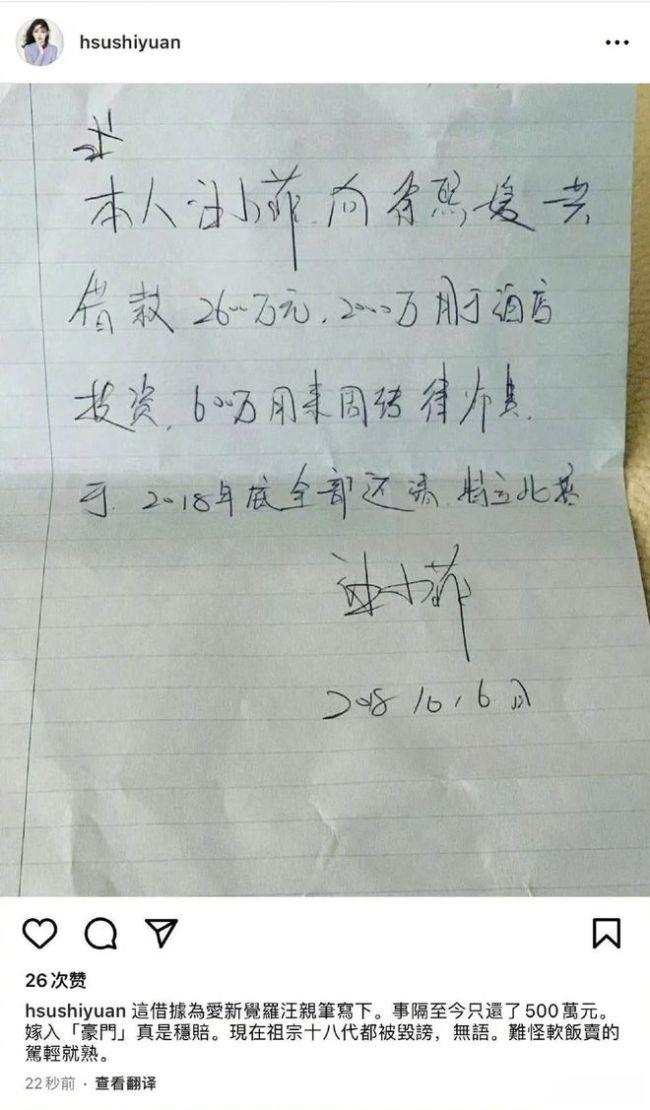 hsushiyuan
本人汪小菲,向徐熙媛共
借款2600万元,2000万用于酒店
投资,600万用来周转律师费.
于2018年底全部还清,特立此据
汪小菲
2018 10, 6日
26次赞
hsushiyuan 這借據為愛新覺羅汪親筆寫下。事隔至今只還了500萬元。
嫁入「豪門」真是穩賠。現在祖宗十八代都被毀謗，無語。難怪軟飯賣的
駕輕就熟。
22秒前 · 查看翻译